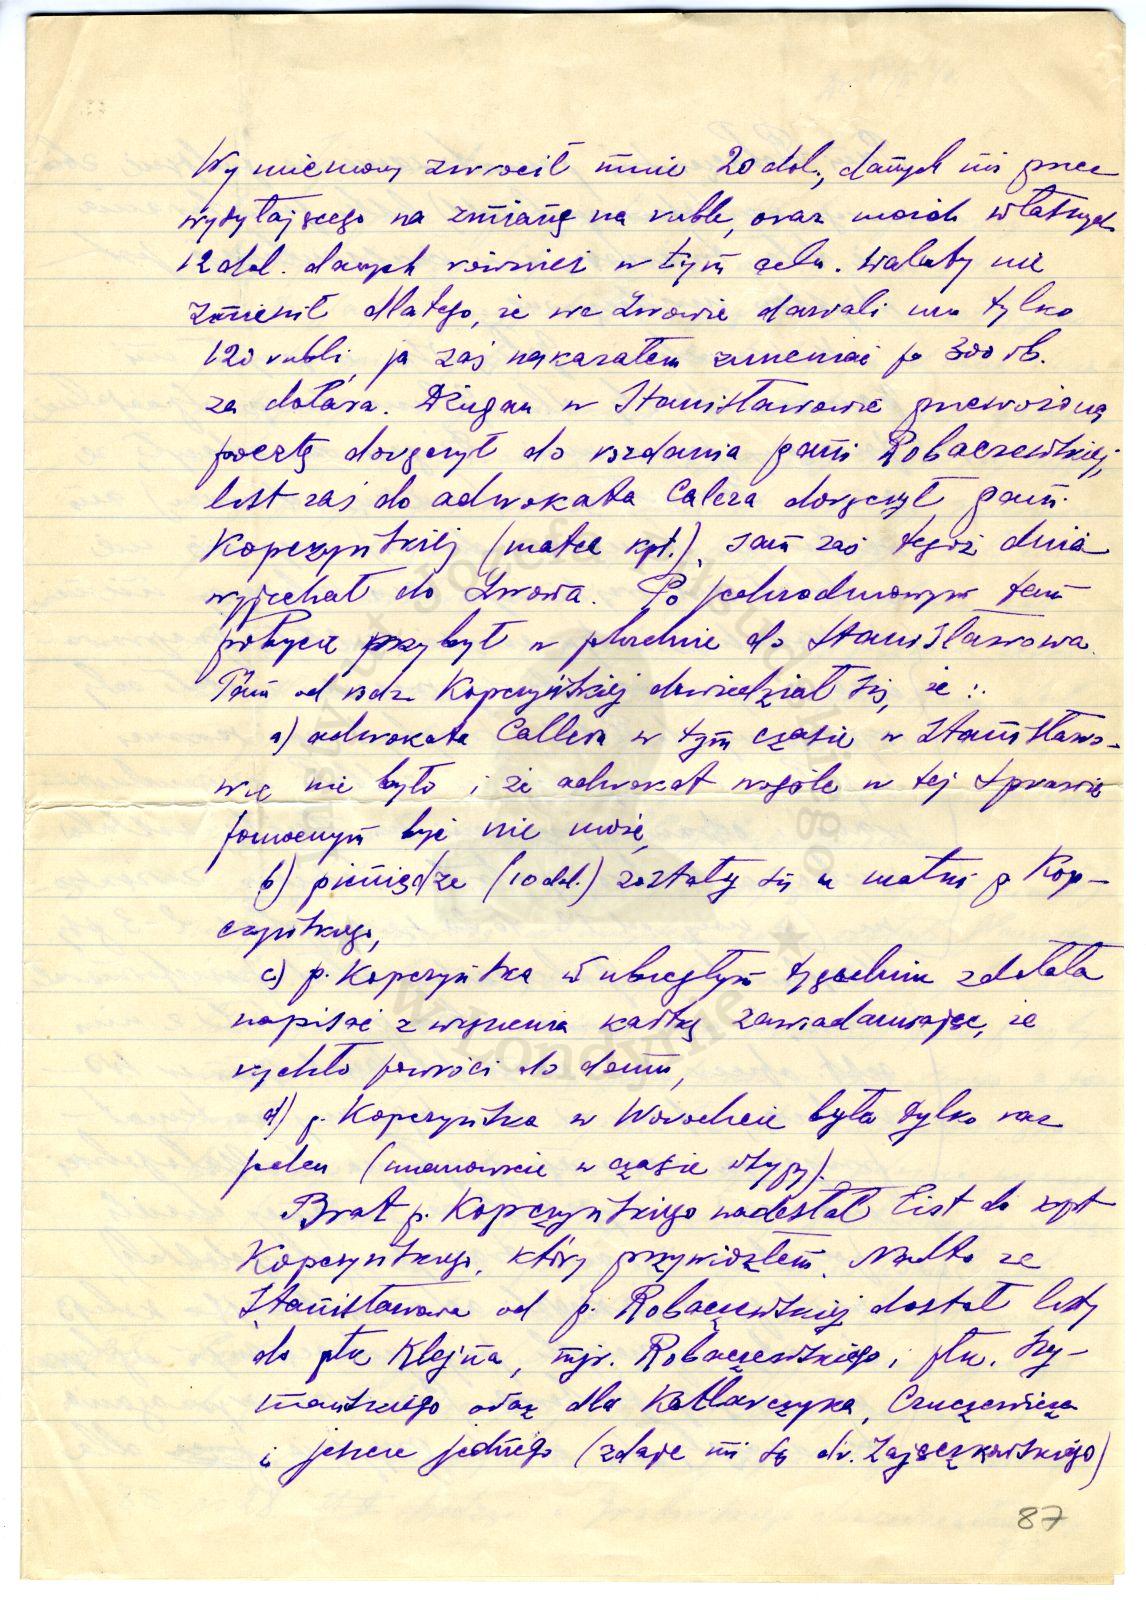 Wymieniony zwrócił mnie 20 dol., danych mi przez
wysyłającego na zmianę na ruble, oraz moich własnych
12 dol. danych również w tym celu. Waluty nie
zmienił dlatego, że we Lwowie dawali mu tylko
120 rubli, ja zaś nakazałem zmieniać po 300 rb.
za dolara. Dżugan w Stanisławowie przewożoną
pocztę doręczył do rozdania pani Robaczewskiej,
list zaś do adwokata Calera doręczył pani
Kopczyńskiej (matce kpt.), sam zaś tegoż dnia
wyjechał do Lwowa. Po jednodniowym tam
pobycie przybył w południe do Stanisławowa.
Tam od rodz. Kopczyńskiej dowiedział się, że:
a) adwokata Callera w tym czasie w Stanisławo-
wie nie było i że adwokat wogóle w tej sprawie
pomocnym być nie może,
b) pieniądze (10 dol.) zostały się u matki p. Kop-
czyńskiego,
c) p. Kopczyńska w ubiegłym tygodniu zdołała
napisać z więzienia kartkę zawiadamiając, że
rychło powróci do domu,
d) p. Kopczyńska w Worochcie była tylko raz
jeden (mianowicie w czasie wsypy).
Brat p. Kopczyńskiego nadesłał list do kpt
Kopczyńskiego, który przywiozłem. Nadto ze
Stanisławowa od p. Robaczewskiej dostał listy
do płk Klejna, mjr. Robaczewskiego i płk. Szy-
mańskiego oraz dla Kotlarczyka,
i jeszcze jednego (zdaje mi się dr. Zajączkowskiego)
87
Londynie